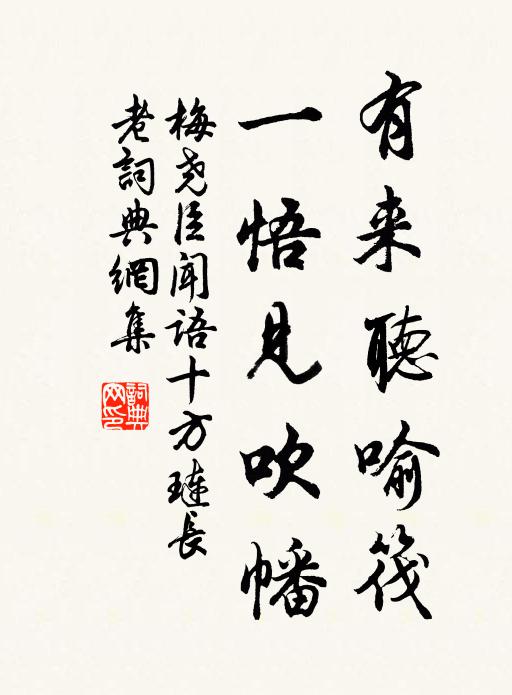 有来聽喻筏
一悟見吹幡
梅尧臣闻语十方琏長
老詞典網集
詞典
网印